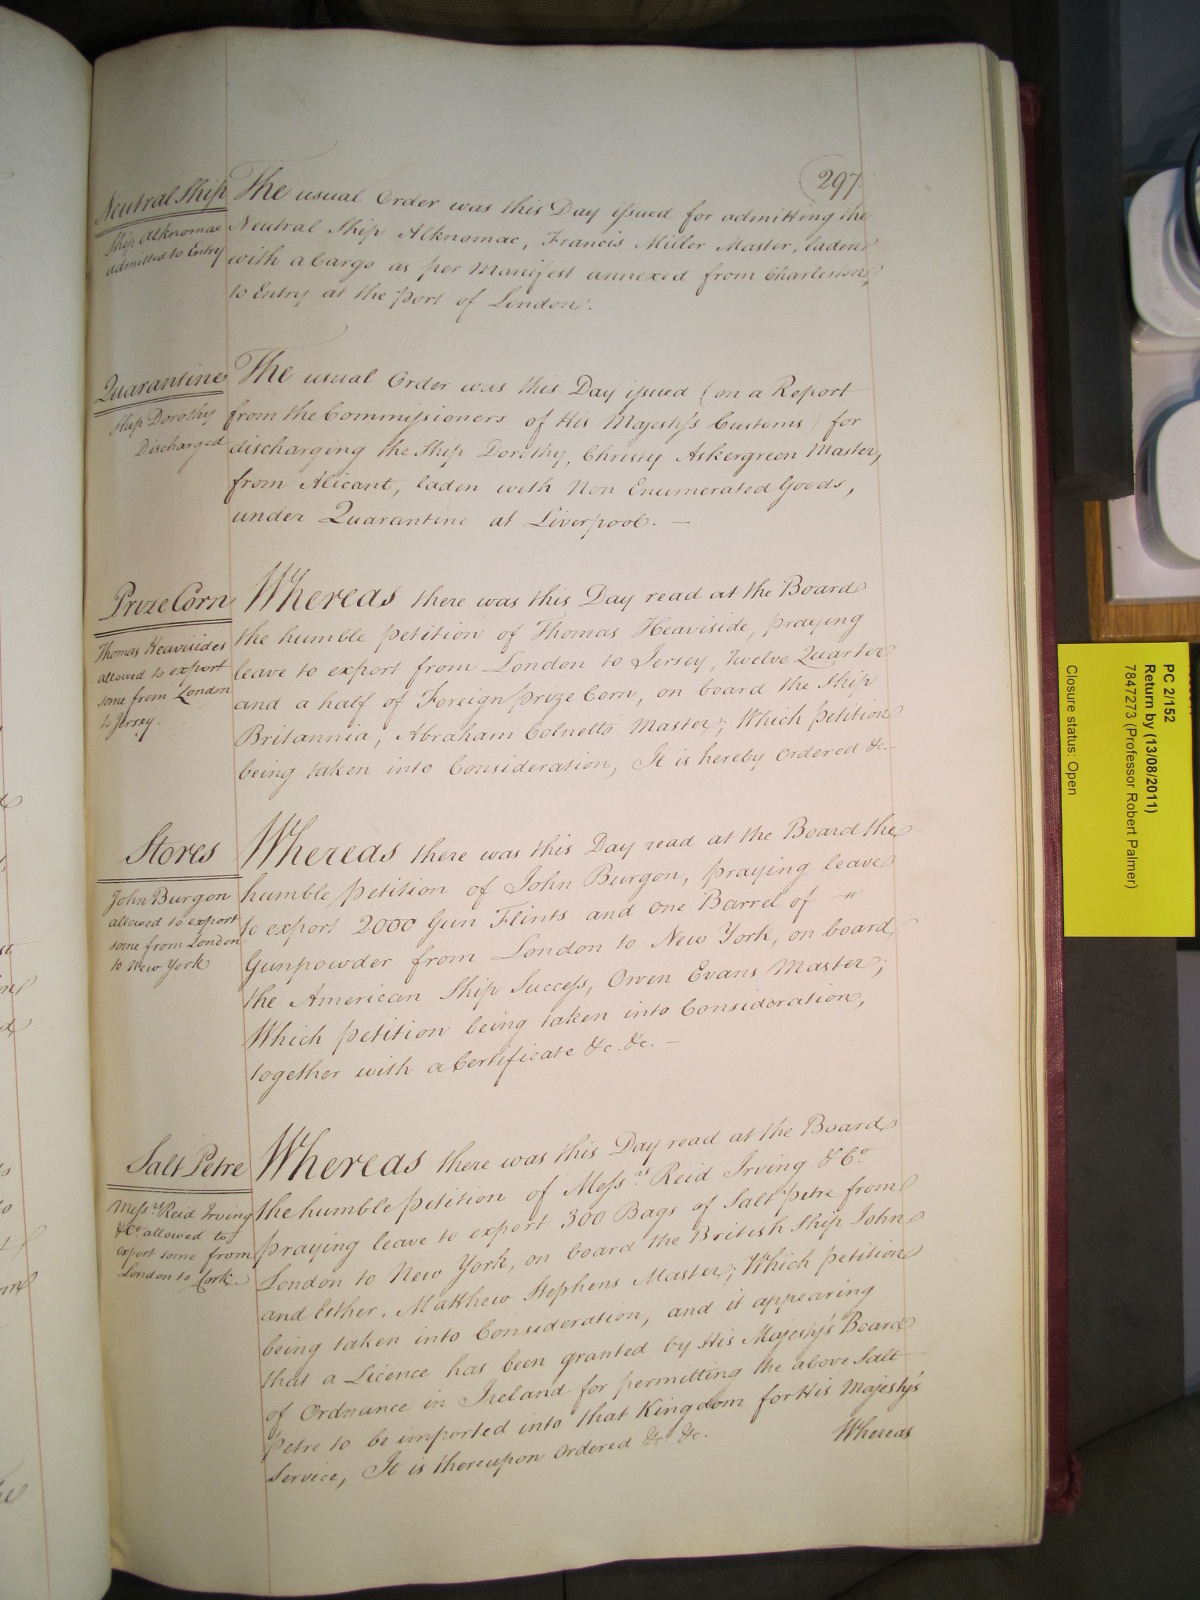 297.
Neutral Ship
Ship Alknomac
admitted to Entry
The usual Order was this Day issued for admitting the
Neutral Ship Alknomac, Francis Miller Master, laden
with a Cargo as per Manifest annexed from Charleston,
to Entry at the port of London.
Quarantine
Ship Dorothy
Discharged
The usual Order was this Day issued (on a Report
from the Commissioners of His Majesty's Customs) for
discharging the Ship Dorothy, Christy Askergreen Master,
from Alicant, laden with Non Enumerated Goods,
under Quarantine at Liverpool. —
Prize Corn
Thomas Heavisides
allowed to export
some from London
to Jersey.
Whereas there was this Day read at the Board
the humble petition of Thomas Heaviside, praying
leave to export from London to Jersey, Twelve Quarter
and a half of Foreign prize Corn, on board the Ship
Britannia, Abraham Colnetts Master; Which petition
being taken into Consideration, It is hereby Ordered &c.—
Stores
John Burgon
allowed to export
some from London
to New York
Whereas there was this Day read at the Board the
humble petition of John Burgon, praying leave
to export 2000 Gun Flints and one Barrel of —"
Gunpowder from London to New York, on board
the American Ship Success, Owen Evans Master;
Which petition being taken into Consideration,
together with a Certificate &c. &c. —
Salt Petre
Mess.rs Reid Irving
& Co. allowed to
export some from
London to Cork.
Whereas there was this Day read at the Board
the humble petition of Mess.rs Reid Irving & Co.
praying leave to export 300 Bags of Salt petre from
London to New York, on board the British Ship John
and Esther, Matthew Stephens Master; Which petition
being taken into Consideration, and it appearing
that a Licence has been granted by His Majesty's Board
of Ordnance in Ireland for permitting the above Salt
petre to be imported into that Kingdom for His Majesty's
Service, It is thereupon Ordered &c &c.
Whereas
PC 2/152
Return by (13/08/2011)
7847273 (Professor Robert Palmer)
Closure status: Open